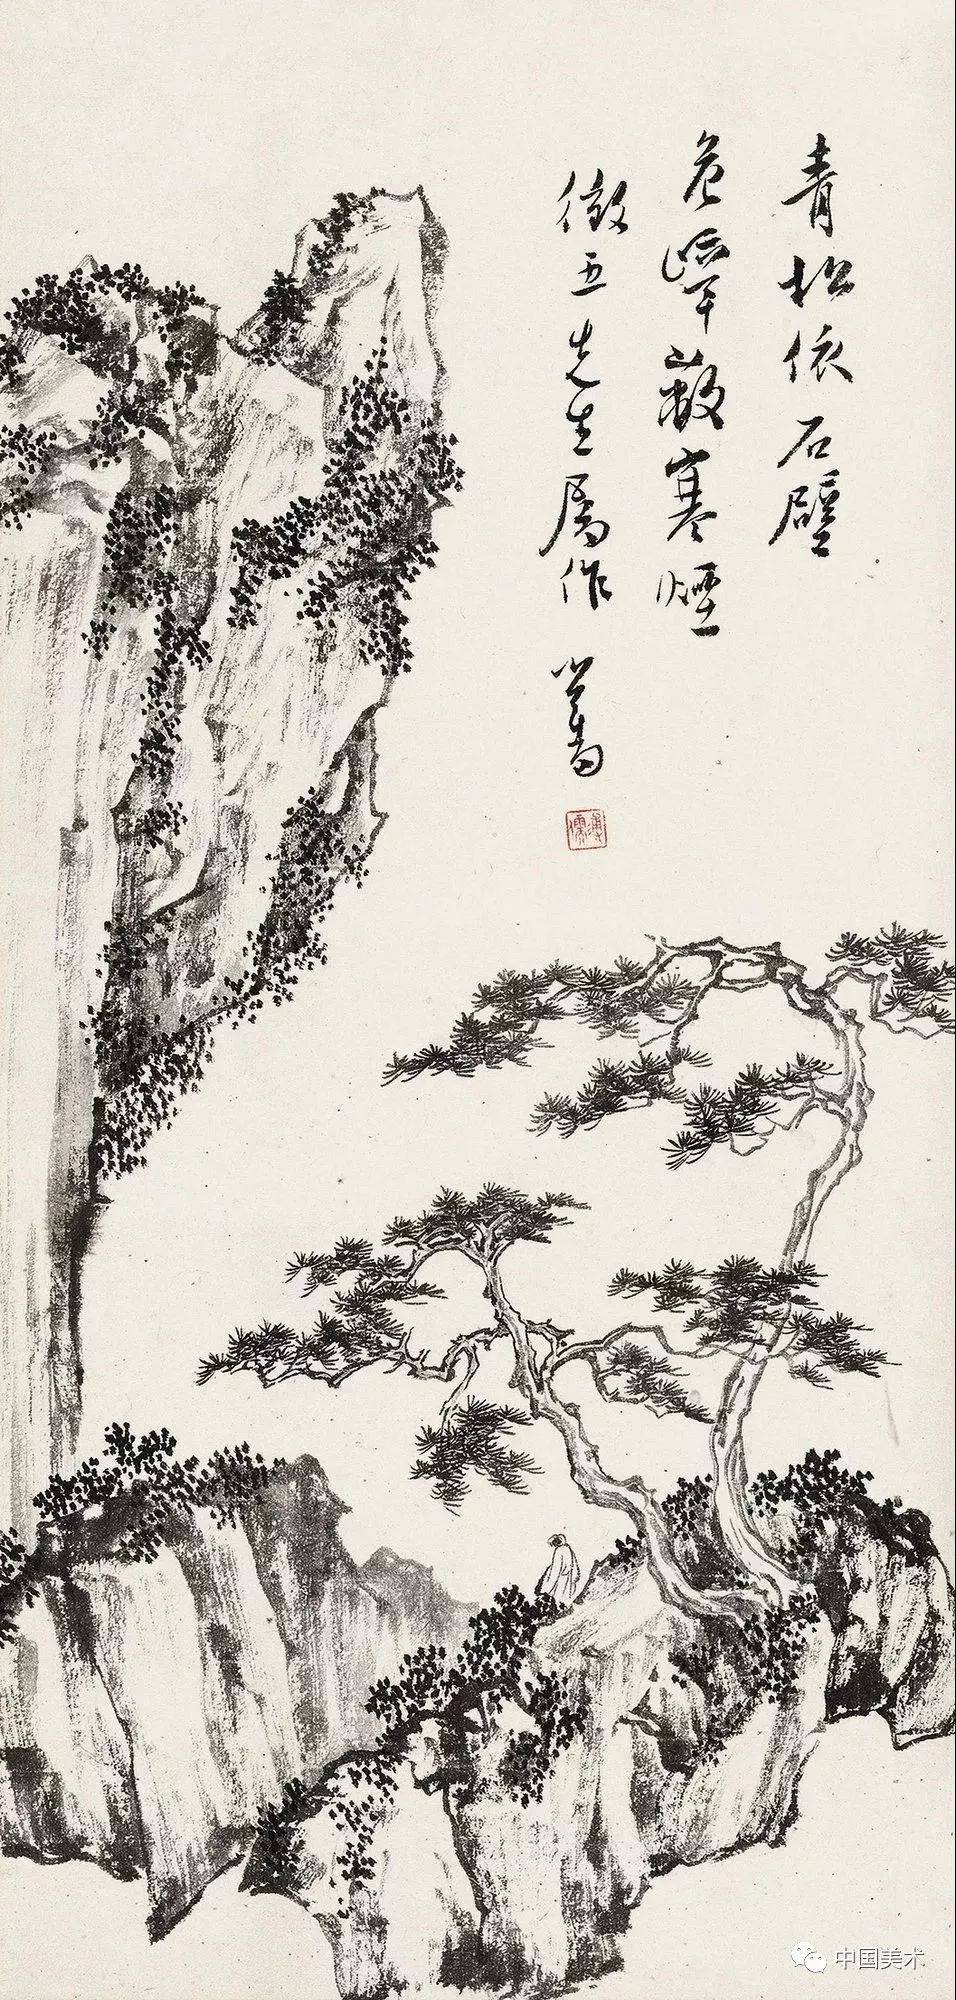 青松依石壁
危嶂蔽寒煙
徵五先生屬作 心畬
溥儒
中国美术